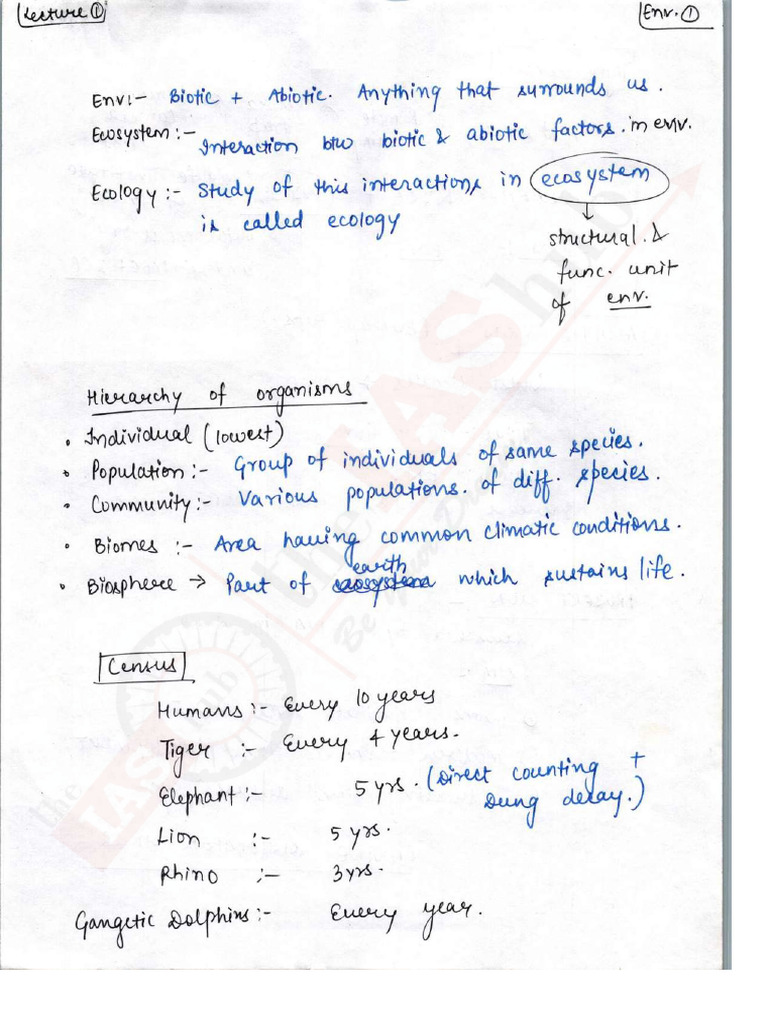 Lecture ①
Env. ①
Env:- Biotic + Abiotic. Anything that surrounds us.
Ecosystem :- Interaction btw biotic & abiotic factors. in env.
Ecology :- Study of this interactions in ecosystem
is called ecology
structural. &
func. unit
of env.
Hierarchy of organisms
• Individual (lowest)
• Population :- Group of individuals of same species.
• Community :- Various populations. of diff. species.
• Biomes :- Area having common climatic conditions.
earth
• Biosphere → Part of ecosystem which sustains life.
Census
Humans :- Every 10 years
Tiger :- Every 4 years.
Elephant :- 5 yrs. (Direct counting +
Dung decay.)
Lion :- 5 yrs.
Rhino :- 3 yrs.
Gangetic Dolphins :- Every year.
the IAS hub
the IAS hub